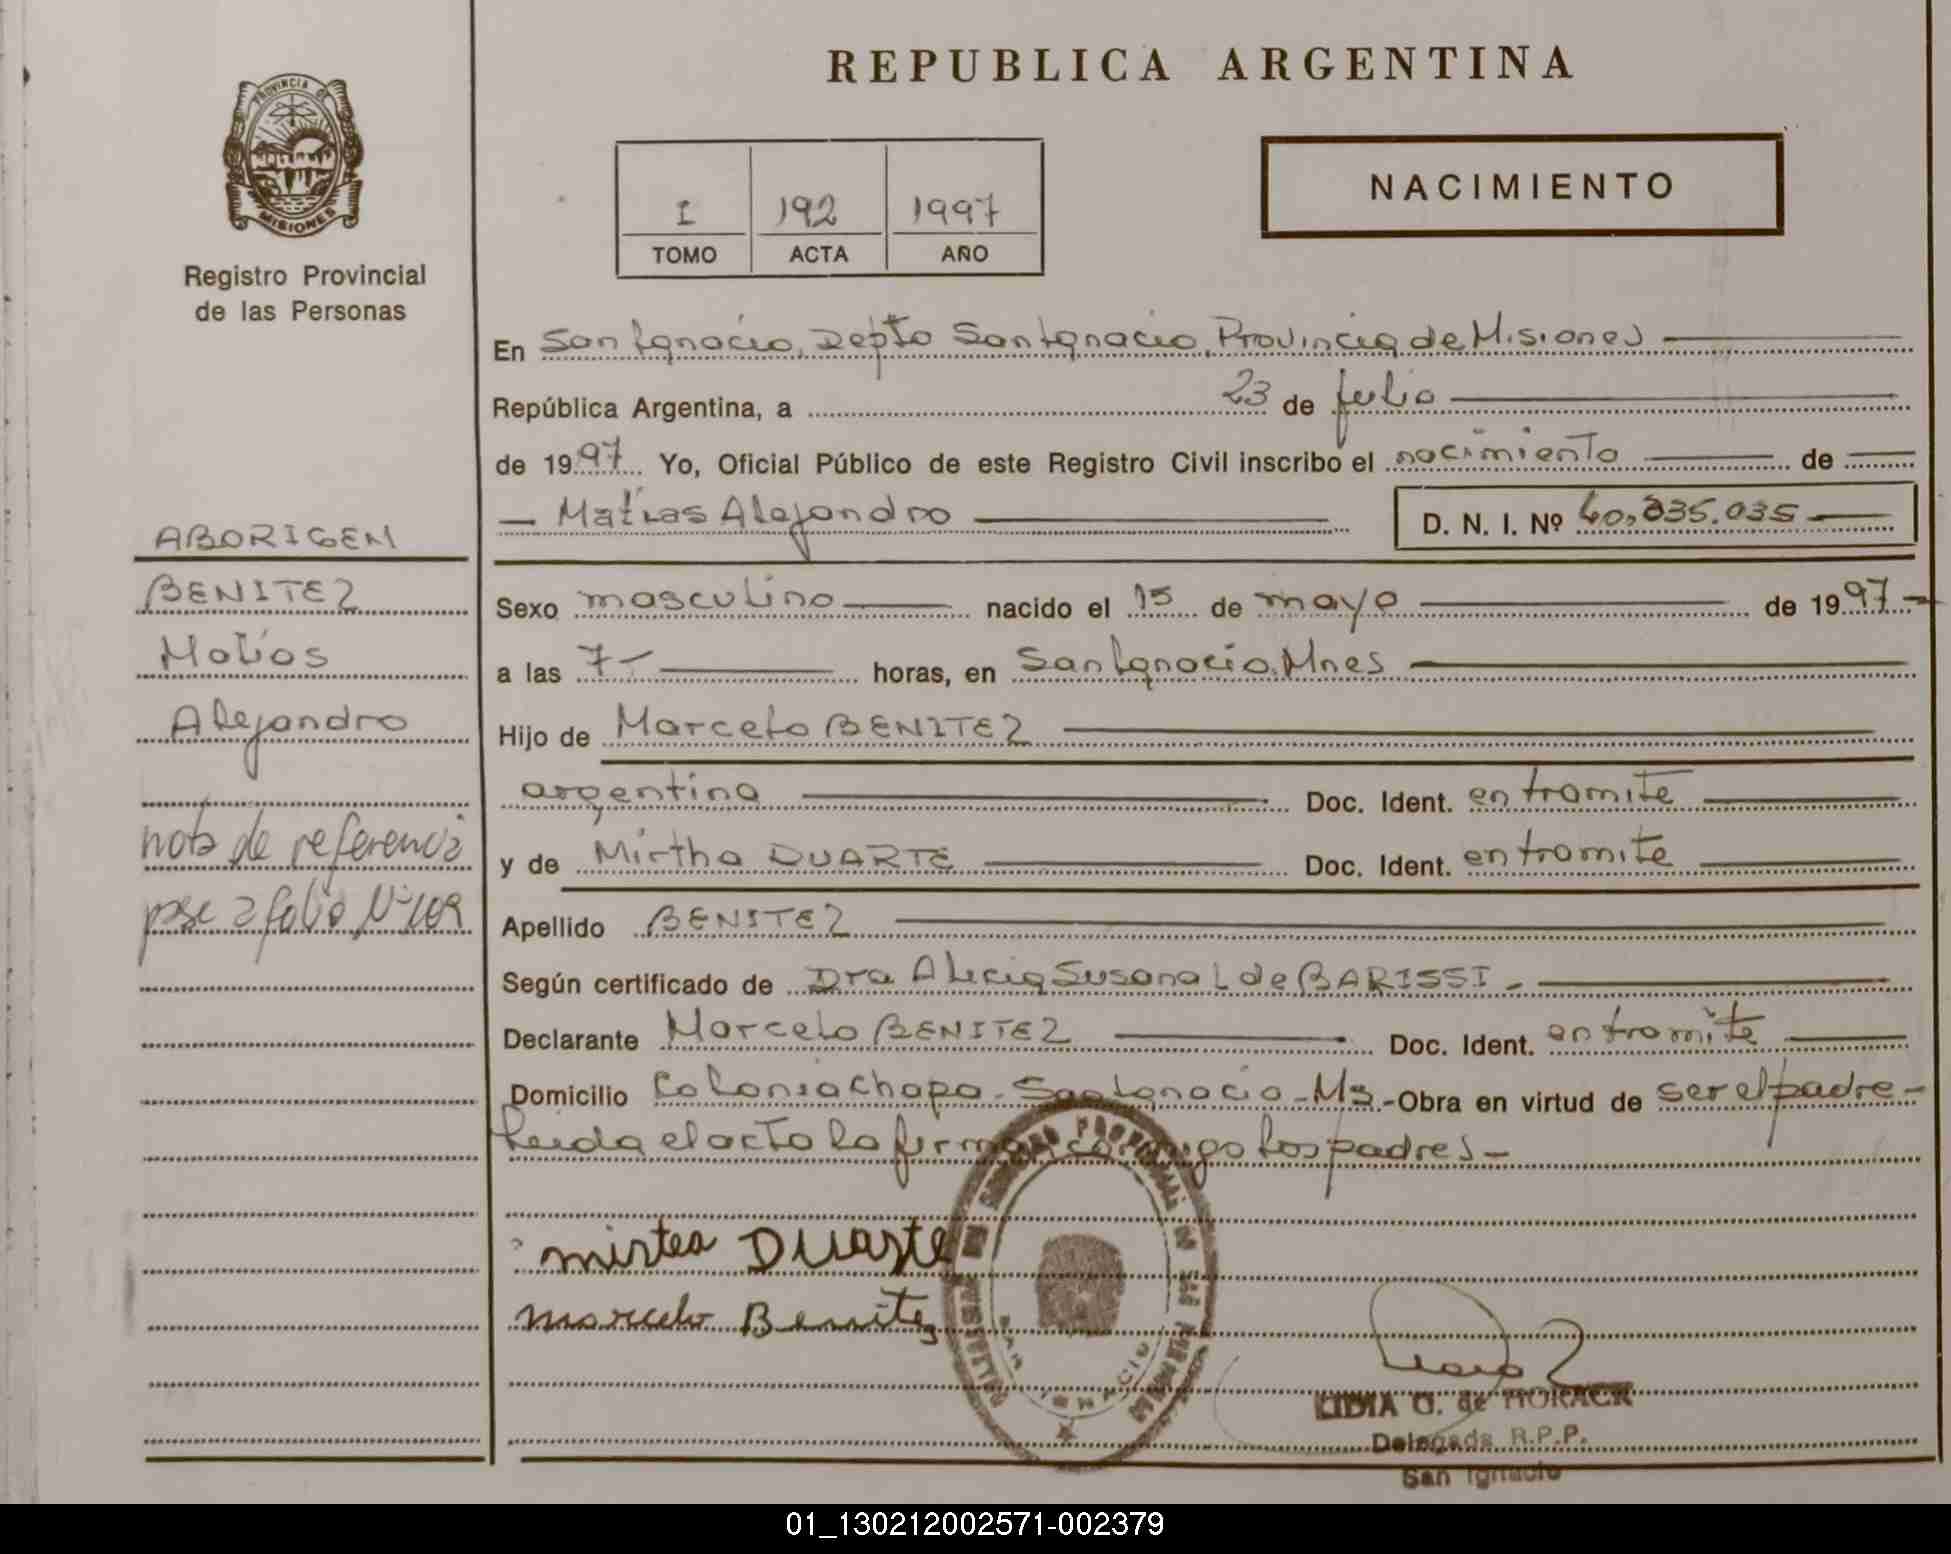 REPUBLICA ARGENTINA
PROVINCIA DE
MISIONES
Registro Provincial
de las Personas
I 192 1997
TOMO ACTA AÑO
NACIMIENTO
En San Ignacio, Depto San Ignacio, Provincia de Misiones
República Argentina, a 23 de julio
de 1997 Yo, Oficial Público de este Registro Civil inscribo el nacimiento de
Matias Alejandro D. N. I. Nº 40.835.035
ABORIGEN
BENITEZ
Matias
Alejandro
nota de referencia
pase a folio Nº 109
Sexo masculino nacido el 15 de mayo de 1997
a las 7 horas, en San Ignacio, Mnes
Hijo de Marcelo BENITEZ
argentina Doc. Ident. en tramite
y de Mirtha DUARTE Doc. Ident. en tramite
Apellido BENITEZ
Según certificado de Dra Alicia Susana L de BARISSI
Declarante Marcelo BENITEZ Doc. Ident. en tramite
Domicilio Colonia Chapa - San Ignacio - Ms - Obra en virtud de ser el padre -
Leida el acta la firman conmigo los padres -
mirtea Duarte
marcelo Benitez
SAN IGNACIO
LIDIA G. de HORACK
Delegada R.P.P.
San Ignacio
01_130212002571-002379